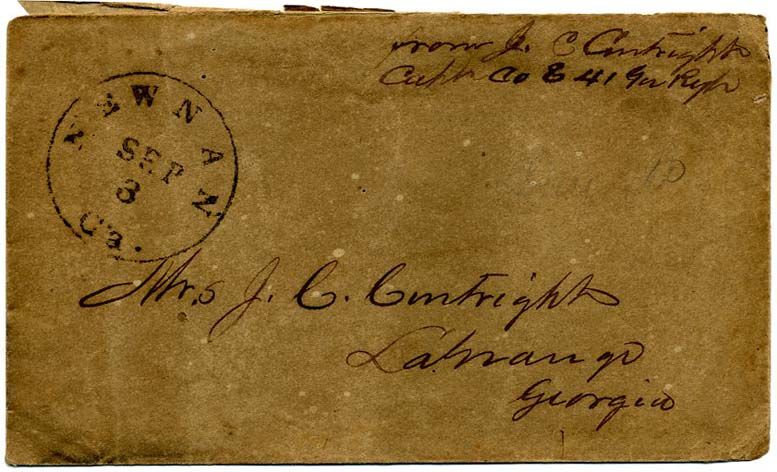 from J. C. Curtright
Capt Co E 41 Ga Regt
NEWNAN
SEP
3
Ga.
Mrs J. C. Curtright
LaGrange
Georgia